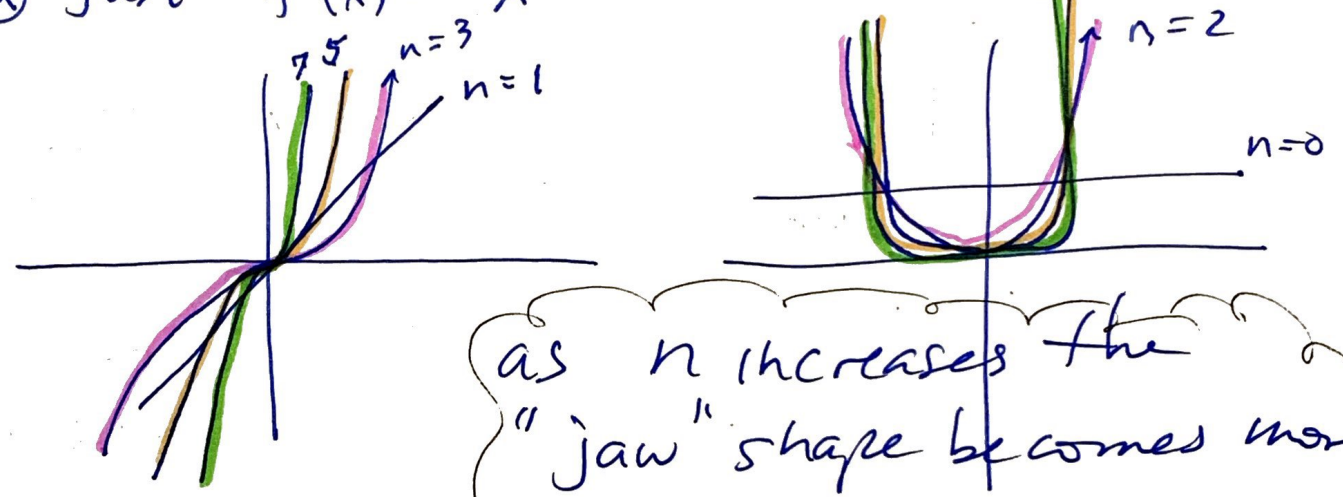 f(x)
7 5 n=3
n=1
n=2
n=0
as n increases the
"jaw" shape becomes mor